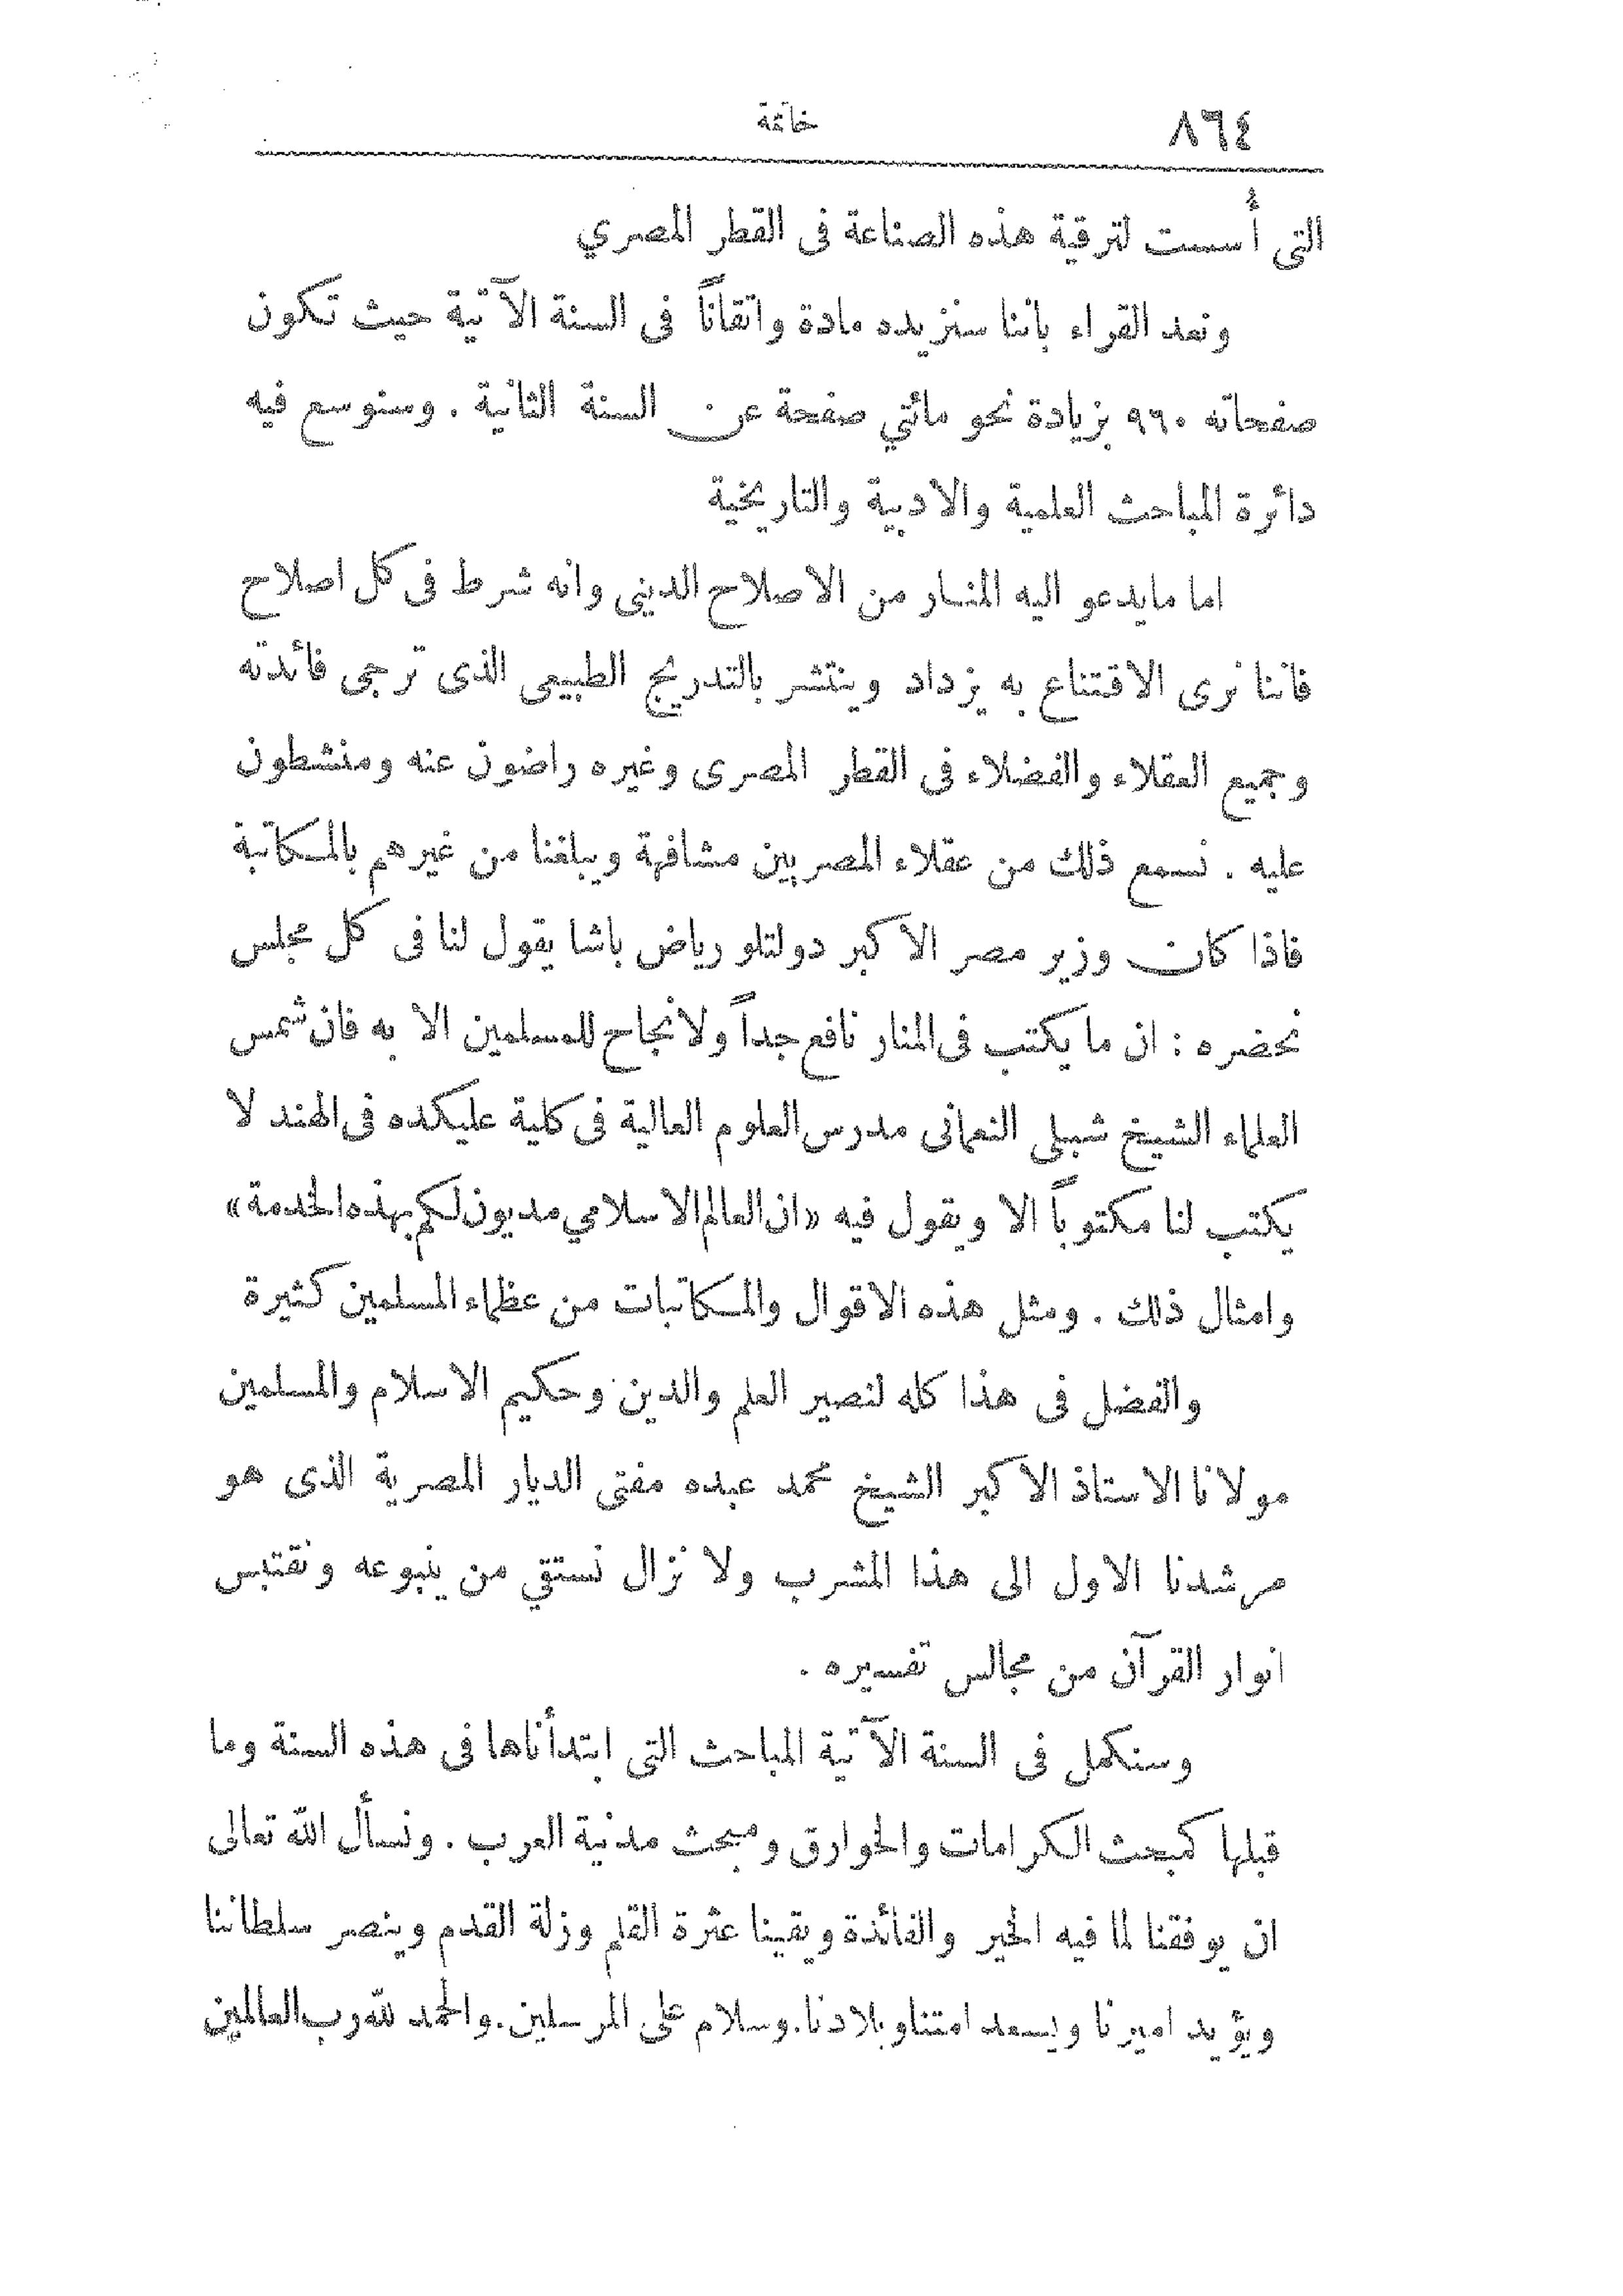 ٨٦٤
خاتمة
التى أُسست لترقية هذه الصناعة فى القطر المصري
ونعد القراء بأننا سنزيده مادة واتقاناً فى السنة الآتية حيث تكون
صفحاته ٩٦٠ بزيادة نحو مائتي صفحة عن السنة الثانية . وسنوسع فيه
دائرة المباحث العلمية والادبية والتاريخية
اما مايدعو اليه المنار من الاصلاح الدينى وانه شرط فى كل اصلاح
فاننا نرى الاقتناع به يزداد وينتشر بالتدريج الطبيعى الذى ترجى فائدته
وجميع العقلاء والفضلاء فى القطر المصرى وغيره راضون عنه ومنشطون
عليه . نسمع ذلك من عقلاء المصريين مشافهة ويبلغنا من غيرهم بالمكاتبة
فاذا كان وزير مصر الاكبر دولتلو رياض باشا يقول لنا فى كل مجلس
نحضره : ان ما يكتب فى المنار نافع جداً ولانجاح للمسلمين الا به فان شمس
العلماء الشيخ شبلى النعمانى مدرس العلوم العالية فى كلية عليكده فى الهند لا
يكتب لنا مكتوباً الا ويقول فيه «ان العالم الاسلامي مديون لكم بهذه الخدمة»
وامثال ذلك . ومثل هذه الاقوال والمكاتبات من عظماء المسلمين كثيرة
والفضل فى هذا كله لنصير العلم والدين وحكيم الاسلام والمسلمين
مولانا الاستاذ الاكبر الشيخ محمد عبده مفتى الديار المصرية الذى هو
مرشدنا الاول الى هذا المشرب ولا نزال نستقي من ينبوعه ونقتبس
انوار القرآن من مجالس تفسيره .
وسنكمل فى السنة الآتية المباحث التى ابتدأناها فى هذه السنة وما
قبلها كمبحث الكرامات والخوارق ومبحث مدنية العرب . ونسأل الله تعالى
ان يوفقنا لما فيه الخير والفائدة ويقينا عثرة القلم وزلة القدم وينصر سلطاننا
ويؤيد اميرنا ويسعد امتنا وبلادنا . وسلام على المرسلين . والحمد لله رب العالمين